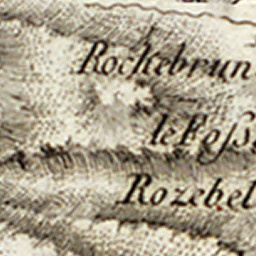 Rockebrun
le Foſs
Rozebel